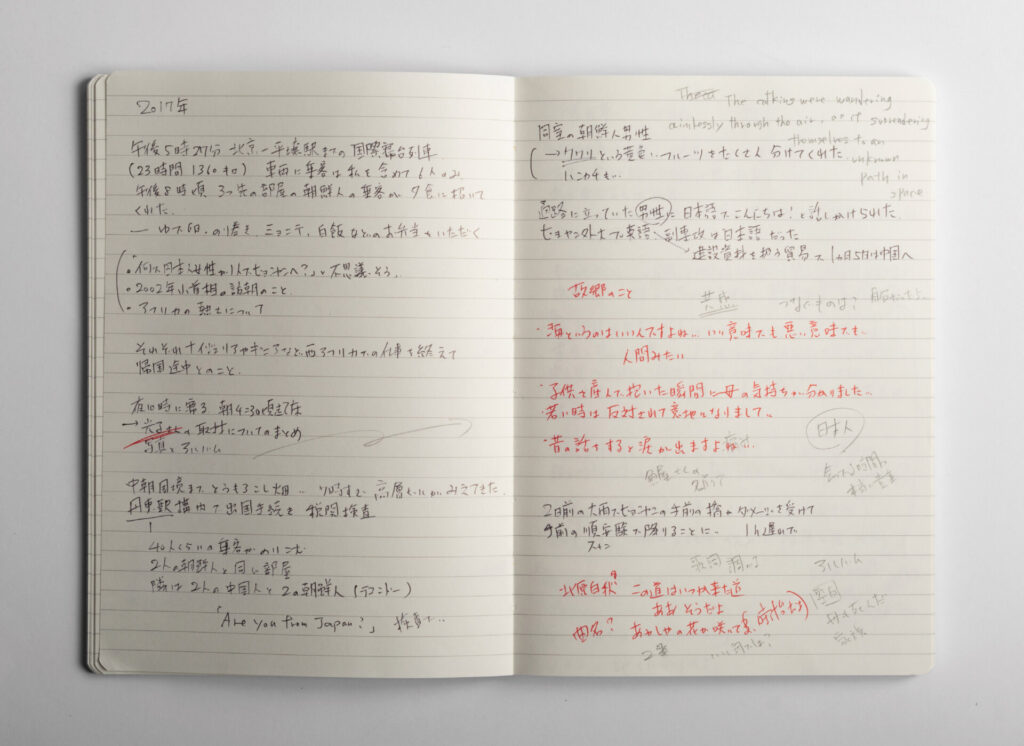 2017年
午後5時27分 北京-平壌駅までの国際寝台列車
(23時間 1360キロ) 車両に乗客は私を含めて6人のみ
午後8時頃 3つ先の部屋の朝鮮人の乗客が夕食に招いて
くれた.
白飯などのお弁当をいただく
・何で日本人女性が1人でピョンヤンへ?」と不思議そう.
・2002年小泉首相の訪朝のこと
・アフリカの熱さについて
それぞれナイジェリアやギニアなど西アフリカでの仕事を終えて
帰国途中とのこと.
夜10時に寝る 朝4:30頃
→ の取材についてのまとめ
写真とアルバム
中朝国境までとうもろこし畑.. 高層ビルがみえてきた.
丹東駅構内で出国手続き 税関検査
↓
40人くらいの乗客がのりこむ
2人の朝鮮人と同じ部屋
隣は2人の中国人と2人の朝鮮人 (テコンドー)
「Are you from Japan?」
The catkins were wandering
aimlessly through the air, as if surrendering
themselves to an
unknown
path in
space
同室の朝鮮人男性
フルーツをたくさん分けてくれた
通路に立っていた男性に日本語でこんにちは!と話しかけられた.
ピョンヤン 英語、副専攻は日本語だった
建設資料を扱う貿易で1ヵ月5日は中国へ
故郷のこと
共感
つなぐものは?
・海というのはいいんですよね.. いい意味でも悪い意味でも.
人間みたい
・子供を産んで抱いた瞬間に母の気持ちが分かりました..
・若い時は反対されて意地になりまして..
・昔の話をすると涙が出ますよ
日本人
2日前の大雨でピョンヤンの手前の橋がダメージを受けて
手前の順安駅で降りることに.. 1h遅れで.
スナン
歌詞 調べる
アルバム
北原白秋? この道はいつか来た道
ああ そうだよ
曲名? あかしやの花が咲いてる.
2番
家族